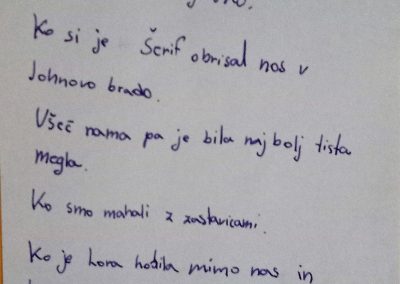 Ko si je Šerif obrisal nos v
Johnovo brado.
Všeč nama pa je bila najbolj tista
megla.
Ko smo mahali z zastavicami.
Ko je Lora hodila mimo nas in